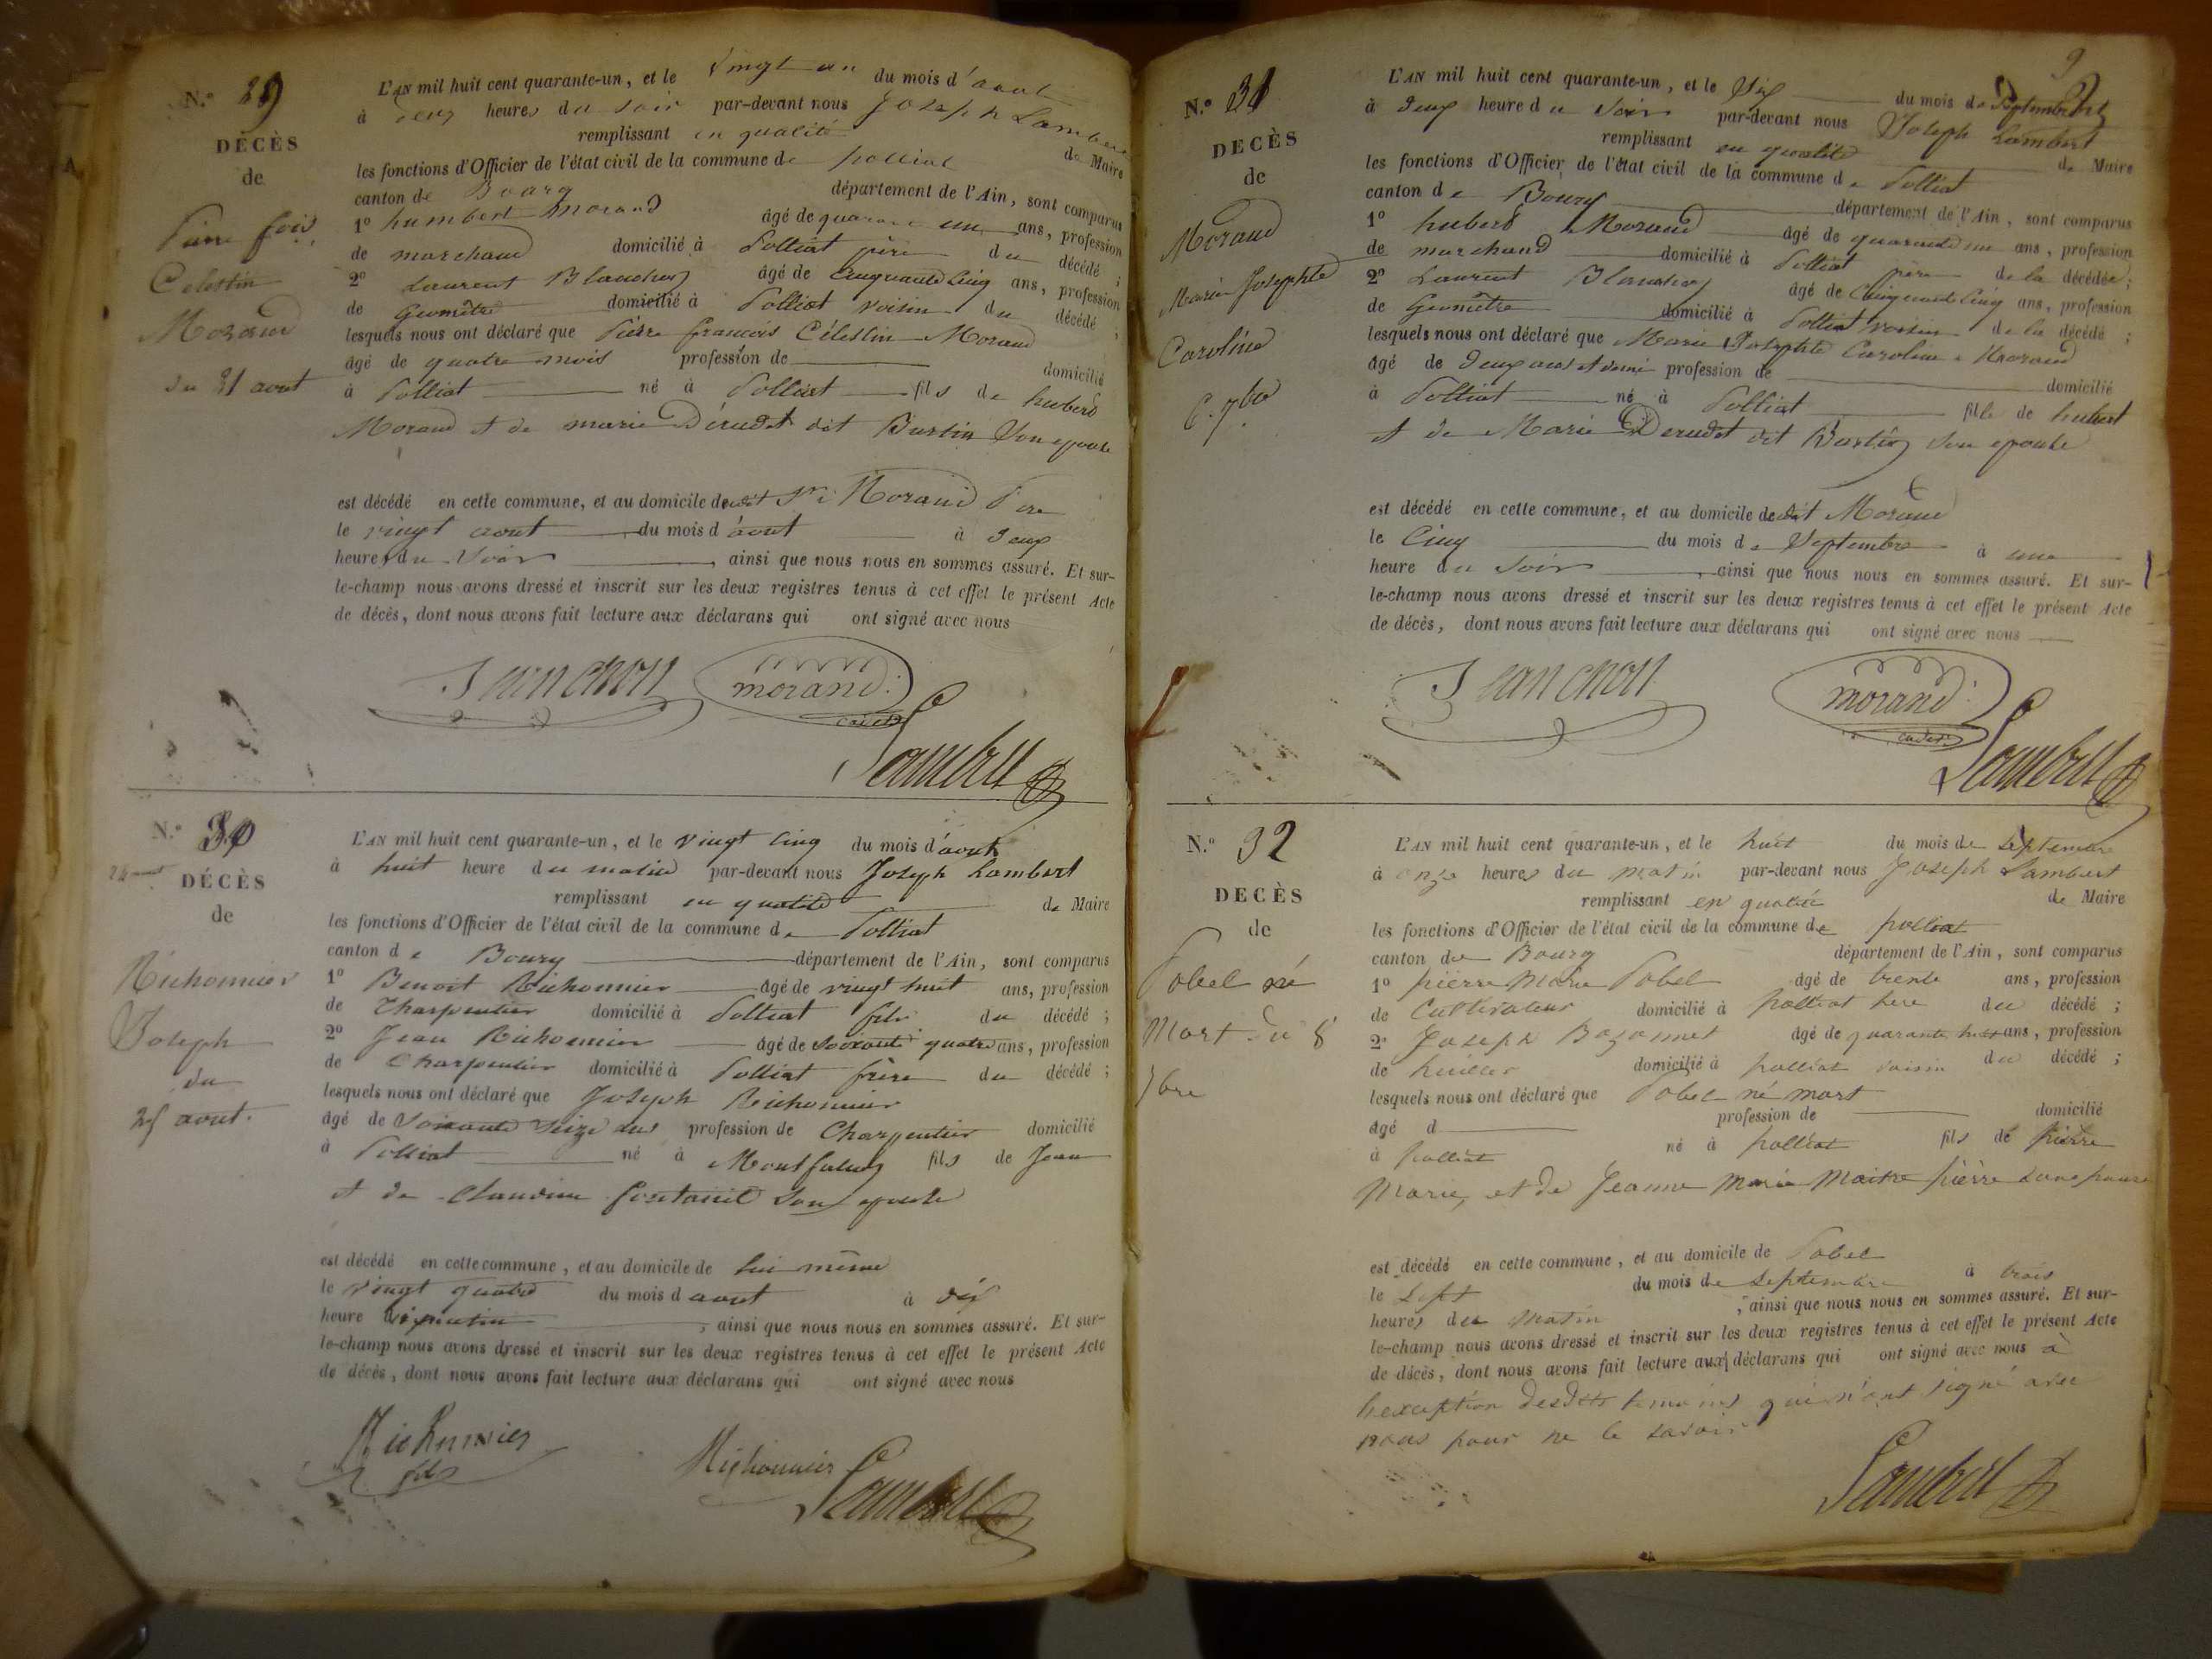 N.o 29
DÉCÈS
de
Pierre fois
Celestin
Morand
du 21 aout
L'AN mil huit cent quarante-un, et le vingt un du mois d'aout
à deux heures du soir par-devant nous Joseph Lambert
remplissant en qualité de Maire
les fonctions d'Officier de l'état civil de la commune de polliat
canton de Bourg département de l'Ain, sont comparus
1o humbert morand âgé de quarante un ans, profession
de marchand domicilié à Polliat père du décédé ;
2o Laurent Blanchon âgé de Cinquante Cinq ans, profession
de Géomètre domicilié à Polliat voisin du décédé ;
lesquels nous ont déclaré que Pierre françois Célestin Morand
âgé de quatre mois profession de domicilié
à Polliat né à Polliat fils de hubert
Morand et de marie Derudet dit Burtin Son epouse
est décédé en cette commune, et au domicile dudit Sr Morand Père
le vingt aout du mois d'aout à deux
heures du Soir, ainsi que nous nous en sommes assuré. Et sur-
le-champ nous avons dressé et inscrit sur les deux registres tenus à cet effet le présent Acte
de décès, dont nous avons fait lecture aux déclarans qui ont signé avec nous
morand
cadet
Lambert
N.o 30
DÉCÈS
de
Richonnier
Joseph
du
25 aout.
L'AN mil huit cent quarante-un, et le vingt cinq du mois d'aout
à huit heure du matin par-devant nous Joseph Lambert
remplissant en qualité de Maire
les fonctions d'Officier de l'état civil de la commune de Polliat
canton de Bourg département de l'Ain, sont comparus
1o Benoit Richonnier âgé de vingt huit ans, profession
de Charpentier domicilié à Polliat fils du décédé ;
2o Jean Richonnier âgé de Soixante quatre ans, profession
de Charpentier domicilié à Polliat frère du décédé ;
lesquels nous ont déclaré que Joseph Richonnier
âgé de Soixante Seize ans profession de Charpentier domicilié
à Polliat né à Montfalcon fils de Jean
et de Claudine Son epouse
est décédé en cette commune, et au domicile de lui même
le vingt quatre du mois d aout à dix
heure du matin, ainsi que nous nous en sommes assuré. Et sur-
le-champ nous avons dressé et inscrit sur les deux registres tenus à cet effet le présent Acte
de décès, dont nous avons fait lecture aux déclarans qui ont signé avec nous
Richonnier
fils
Richonnier
Lambert
9
N.o 31
DECÈS
de
Morand
Marie Josephte
Caroline
6. 7bre
L'AN mil huit cent quarante-un, et le Six du mois de Septembre
à deux heure du Soir par-devant nous Joseph Lambert
remplissant en qualité de Maire
les fonctions d'Officier de l'état civil de la commune de Polliat
canton de Bourg département de l'Ain, sont comparus
1o hubert Morand âgé de quarante un ans, profession
de marchand domicilié à Polliat père de la décédée ;
2o Laurent Blanchon âgé de Cinquante Cinq ans, profession
de Géomètre domicilié à Polliat voisin de la décédé ;
lesquels nous ont déclaré que Marie Josephte Caroline Morand
âgé de deux ans et demi profession de domicilié
à Polliat né à Polliat fille de hubert
et de Marie Derudet dit Burtin Son epouse
est décédé en cette commune, et au domicile dudit Morand
le Cinq du mois de Septembre à une
heure du Soir, ainsi que nous nous en sommes assuré. Et sur-
le-champ nous avons dressé et inscrit sur les deux registres tenus à cet effet le présent Acte
de décès, dont nous avons fait lecture aux déclarans qui ont signé avec nous
morand
cadet
Lambert
N.o 32
DECÈS
de
Pobel né
Mort du 8
7bre
L'AN mil huit cent quarante-un, et le huit du mois de septembre
à onze heures du matin par-devant nous Joseph Lambert
remplissant en qualité de Maire
les fonctions d'Officier de l'état civil de la commune de polliat
canton de Bourg département de l'Ain, sont comparus
1o pierre Marie Pobel âgé de trente ans, profession
de Cultivateur domicilié à polliat père du décédé ;
2o Joseph Bozonnet âgé de quarante huit ans, profession
de huilier domicilié à polliat voisin du décédé ;
lesquels nous ont déclaré que Pobel né mort
âgé d profession de domicilié
à polliat né à polliat fils de pierre
Marie, et de Jeanne Marie Maitre pierre son epouse
est décédé en cette commune, et au domicile de Pobel
le sept du mois de septembre à trois
heures du matin, ainsi que nous nous en sommes assuré. Et sur-
le-champ nous avons dressé et inscrit sur les deux registres tenus à cet effet le présent Acte
de décès, dont nous avons fait lecture aux déclarans qui ont signé avec nous à
l'exception desdits temoins qui n'ont signé avec
nous pour ne le savoir
Lambert